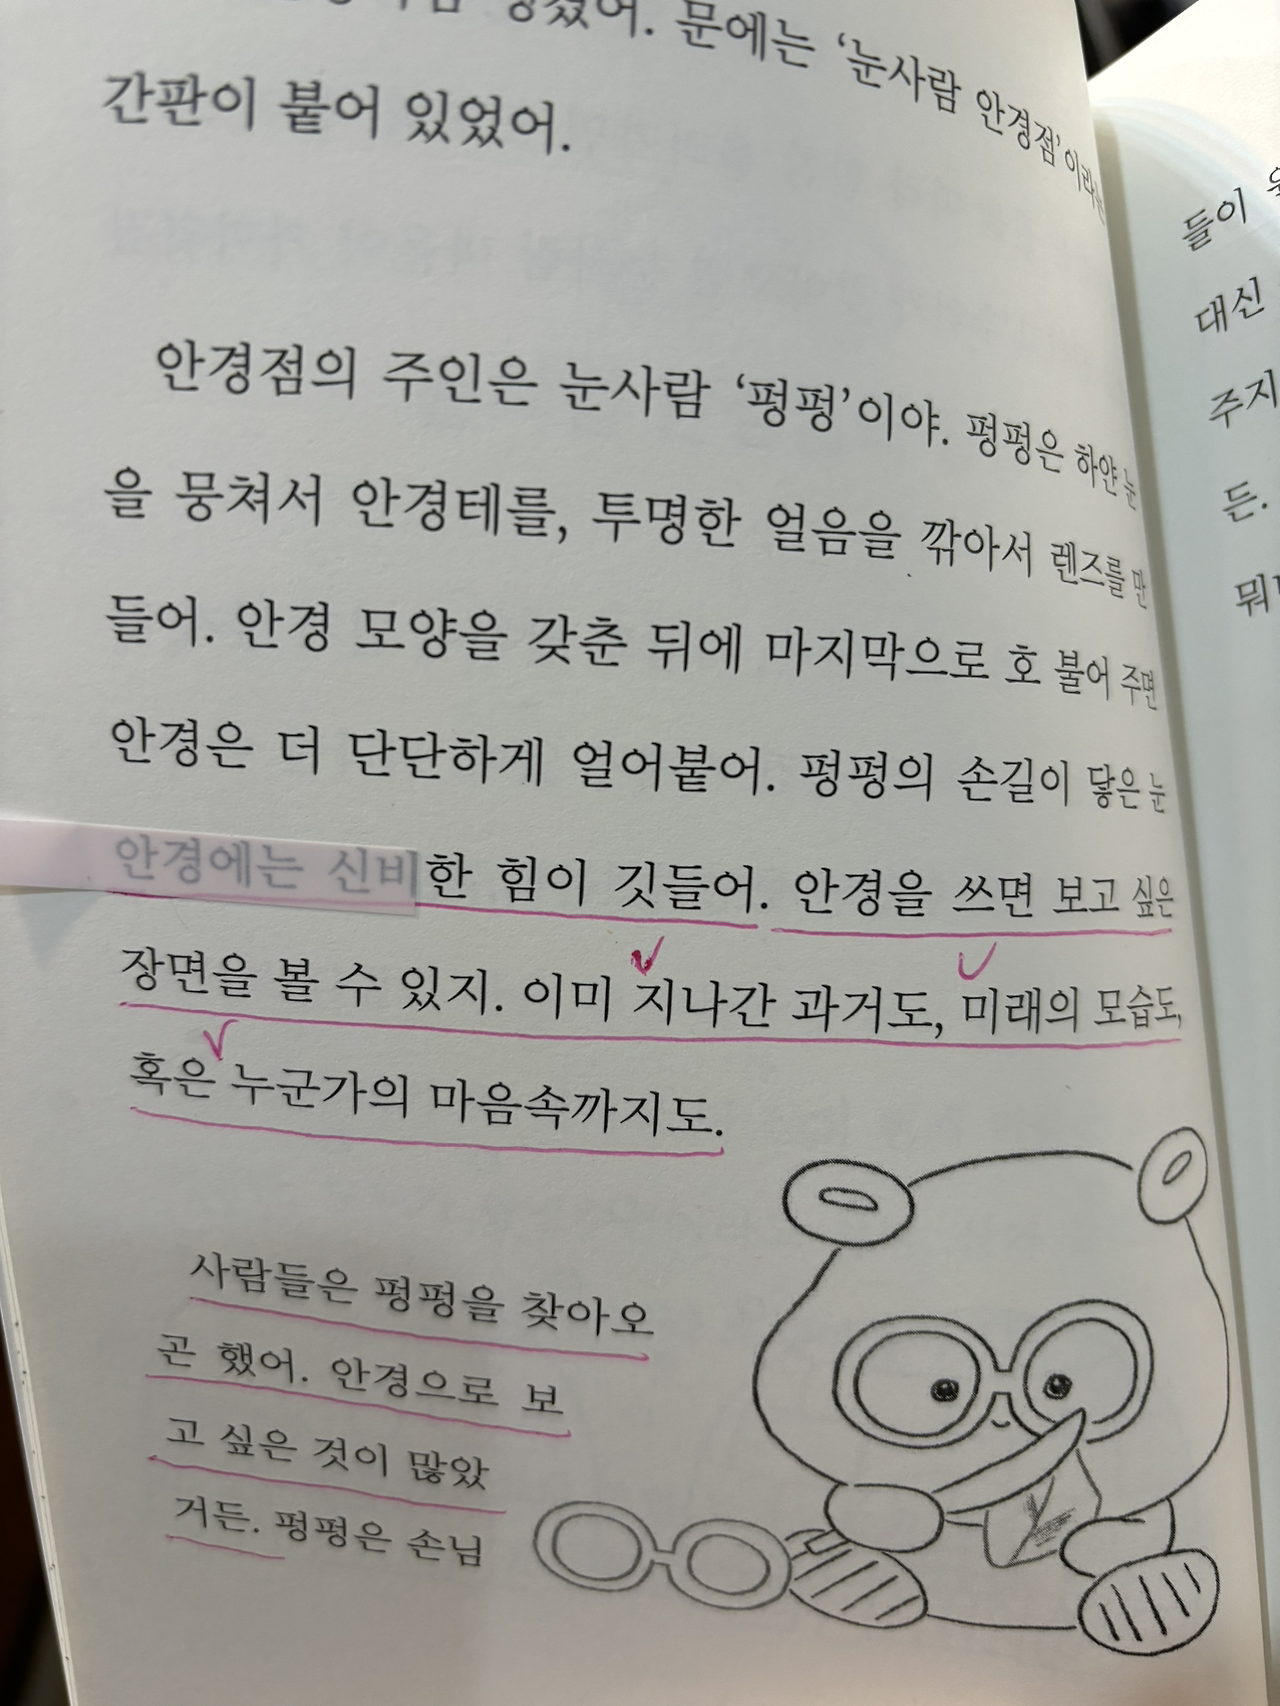 문에는 ‘눈사람 안경점’이라는
간판이 붙어 있었어.
안경점의 주인은 눈사람 ‘펑펑’이야. 펑펑은 하얀 눈
을 뭉쳐서 안경테를, 투명한 얼음을 깎아서 렌즈를 만
들어. 안경 모양을 갖춘 뒤에 마지막으로 호 불어 주면
안경은 더 단단하게 얼어붙어. 펑펑의 손길이 닿은 눈
안경에는 신비한 힘이 깃들어. 안경을 쓰면 보고 싶은
장면을 볼 수 있지. 이미 지나간 과거도, 미래의 모습도,
혹은 누군가의 마음속까지도.
사람들은 펑펑을 찾아오
곤 했어. 안경으로 보
고 싶은 것이 많았
거든. 펑펑은 손님
들이
대신
주지
든.